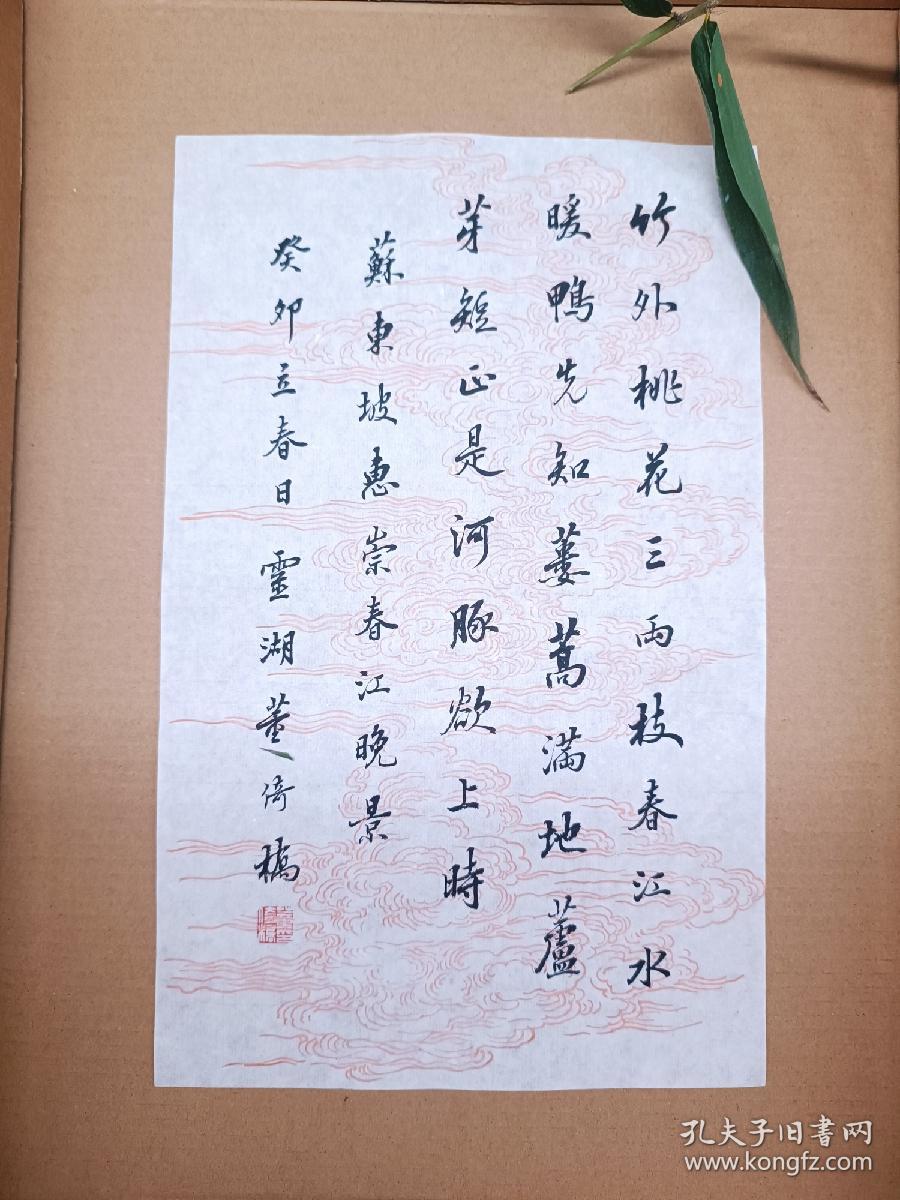 竹外桃花三兩枝春江水
暖鴨先知蔞蒿滿地蘆
芽短正是河豚欲上時
蘇東坡惠崇春江晚景
癸卯立春日靈湖董倚橋
孔夫子旧书网
www.kongfz.com